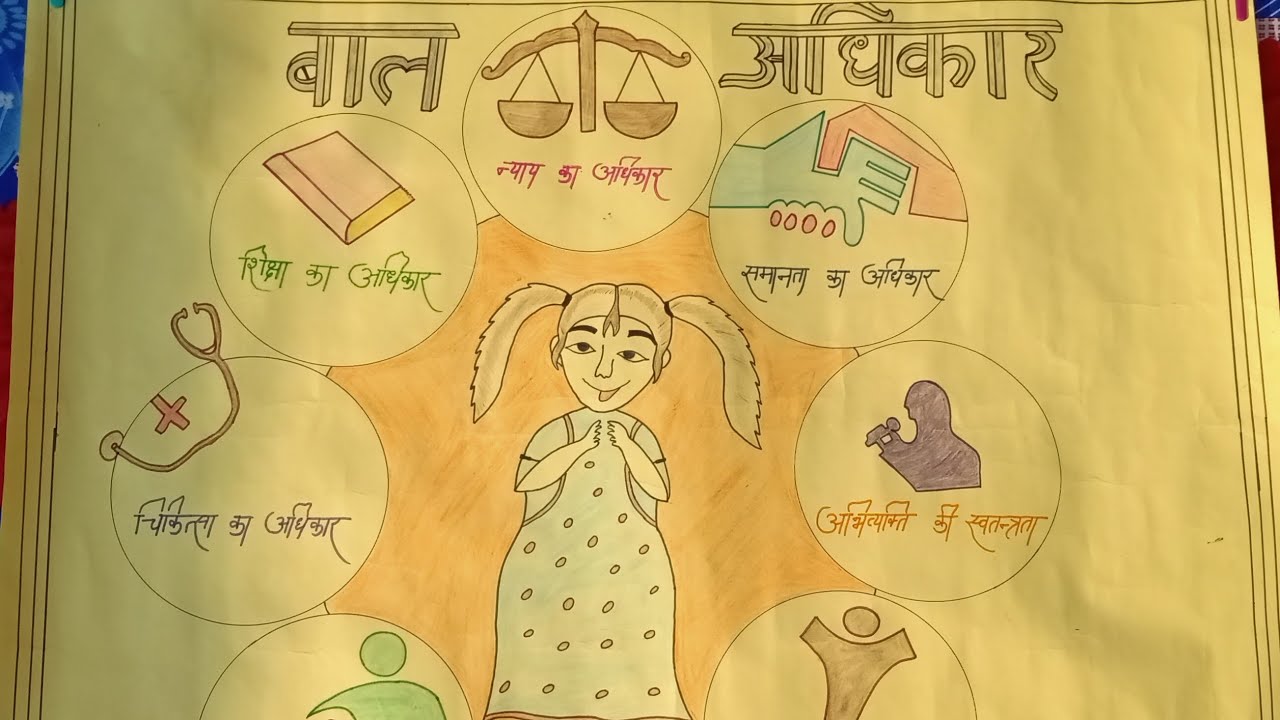 बाल अधिकार
न्याय का अधिकार
शिक्षा का अधिकार
समानता का अधिकार
चिकित्सा का अधिकार
अभिव्यक्ति की स्वतन्त्रता